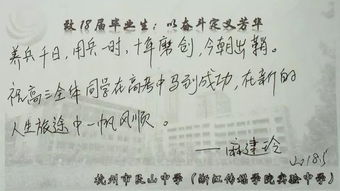 致18届毕业生：以奋斗定义芳华
养兵千日，用兵一时，十年磨剑，今朝出鞘。
祝高三全体同学在高考中马到成功，在新的
人生旅途中一帆风顺。
——麻建玲
2018.5
杭州市艮山中学（浙江传媒学院实验中学）